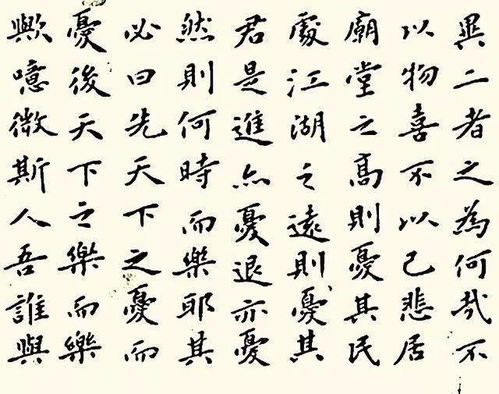 異二者之為何哉不
以物喜不以己悲居
廟堂之高則憂其民
處江湖之遠則憂其
君是進亦憂退亦憂
然則何時而樂耶其
必曰先天下之憂而
憂後天下之樂而樂
歟噫微斯人吾誰與